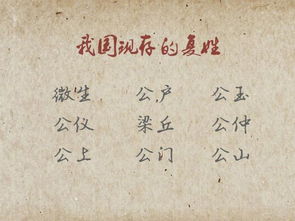 我国现存的复姓
微生 公户 公玉
公仪 梁丘 公仲
公上 公门 公山